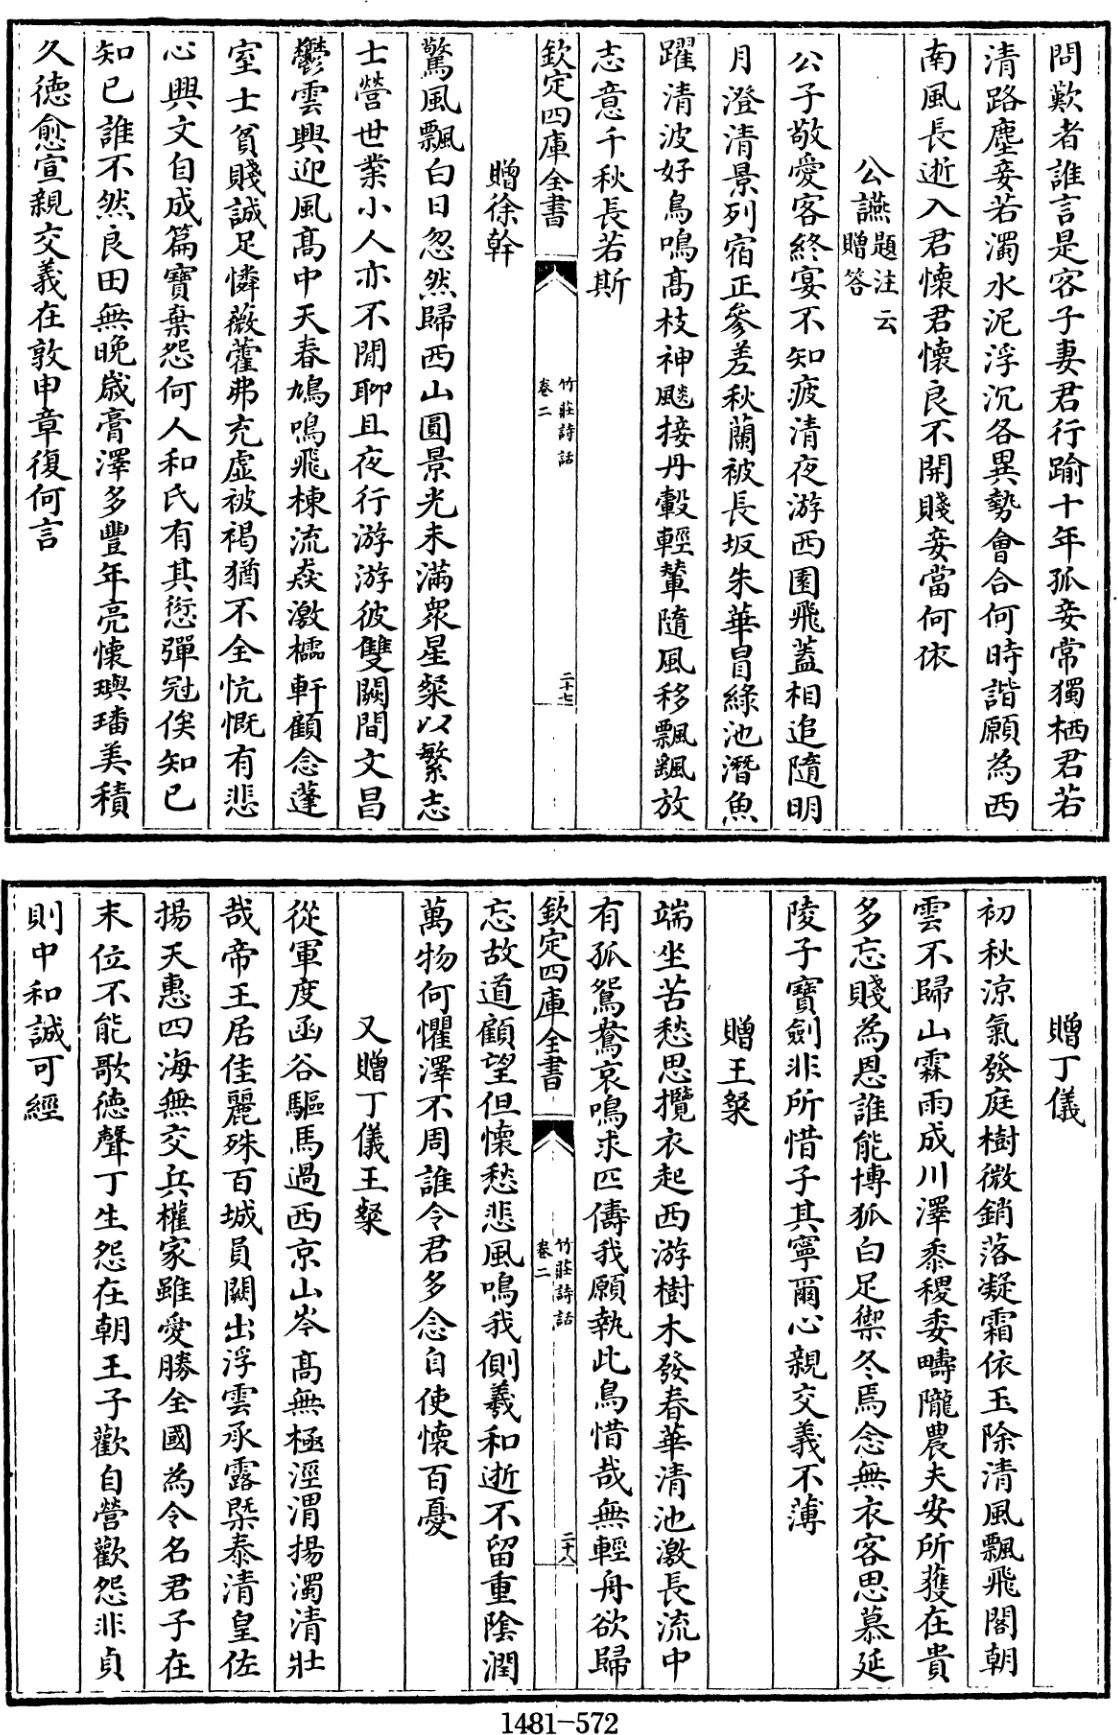 問歎者誰言是客子妻君行踰十年孤妾常獨栖君若
清路塵妾若濁水泥浮沉各異勢會合何時諧願為西
南風長逝入君懷君懷良不開賤妾當何依
公讌題注云贈答
公子敬愛客終宴不知疲清夜游西園飛蓋相追隨明
月澄清景列宿正參差秋蘭被長坂朱華冒綠池潛魚
躍清波好鳥鳴高枝神飇接丹轂輕輦隨風移飄颻放
志意千秋長若斯
欽定四庫全書
竹莊詩話
卷二
二十七
贈徐幹
驚風飄白日忽然歸西山圓景光未滿衆星粲以繁志
士營世業小人亦不閒聊且夜行游游彼雙闕間文昌
鬱雲興迎風高中天春鳩鳴飛棟流猋激櫺軒顧念蓬
室士貧賤誠足憐薇藿弗充虛被褐猶不全忼慨有悲
心興文自成篇寶棄怨何人和氏有其愆彈冠俟知已
知已誰不然良田無晚歲膏澤多豐年亮懷璵璠美積
久德愈宣親交義在敦申章復何言
贈丁儀
初秋涼氣發庭樹微銷落凝霜依玉除清風飄飛閣朝
雲不歸山霖雨成川澤黍稷委疇隴農夫安所獲在貴
多忘賤為恩誰能博狐白足禦冬焉念無衣客思慕延
陵子寶劍非所惜子其寧爾心親交義不薄
贈王粲
端坐苦愁思攬衣起西游樹木發春華清池激長流中
有孤鴛鴦哀鳴求匹儔我願執此鳥惜哉無輕舟欲歸
欽定四庫全書
竹莊詩話
卷二
二十八
忘故道顧望但懷愁悲風鳴我側羲和逝不留重陰潤
萬物何懼澤不周誰令君多念自使懷百憂
又贈丁儀王粲
從軍度函谷驅馬過西京山岑高無極涇渭揚濁清壯
哉帝王居佳麗殊百城員闕出浮雲承露槩泰清皇佐
揚天惠四海無交兵權家雖愛勝全國為令名君子在
末位不能歌德聲丁生怨在朝王子歡自營歡怨非貞
則中和誠可經
1481-572